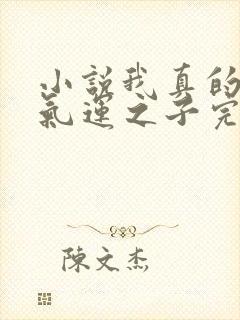 小說我真的
氣運之子完
陳文杰